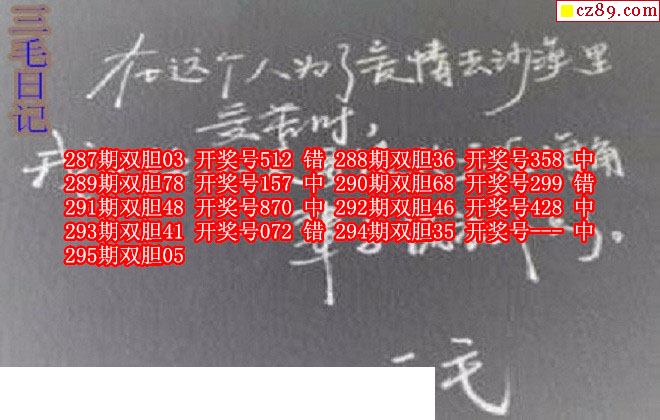 cz89.com
三毛日记
在这个人为了爱情去沙漠里
受苦时,
我
角
287期双胆03 开奖号512 错 288期双胆36 开奖号358 中
289期双胆78 开奖号157 中 290期双胆68 开奖号299 错
291期双胆48 开奖号870 中 292期双胆46 开奖号428 中
293期双胆41 开奖号072 错 294期双胆35 开奖号--- 中
295期双胆05
一毛